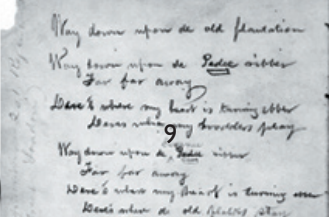 Way down upon de old plantation
Way down upon de Pedee ribber
Far far away
Dere's where my heart is turning ebber
Deres wha my brodders play
9
Way down upon de Pedee ribber
Far far away
Dere's where my heart is turning
Dere's where de old